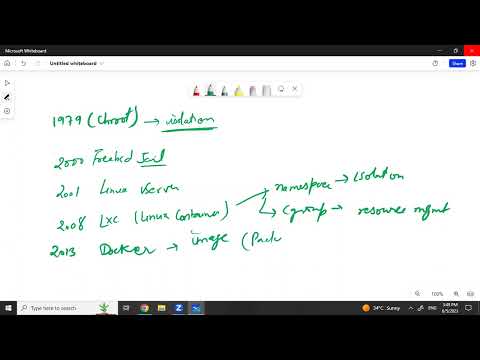 Microsoft Whiteboard
Untitled whiteboard
1979 (Chroot) → isolation
2000 Freebsd Jail
2001 Linux Vserver
2008 LXC (Linux Container)
namespace → isolation
Cgroup → resource mgmt
2013 Docker → image (Pack
100%
Type here to search
34°C Sunny
3:49 PM
6/5/2023